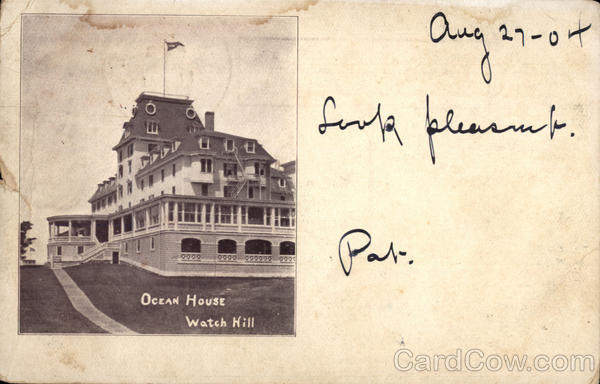 Aug 27-04
Look pleasant.
Pat.
Ocean House
Watch Hill
CardCow.com